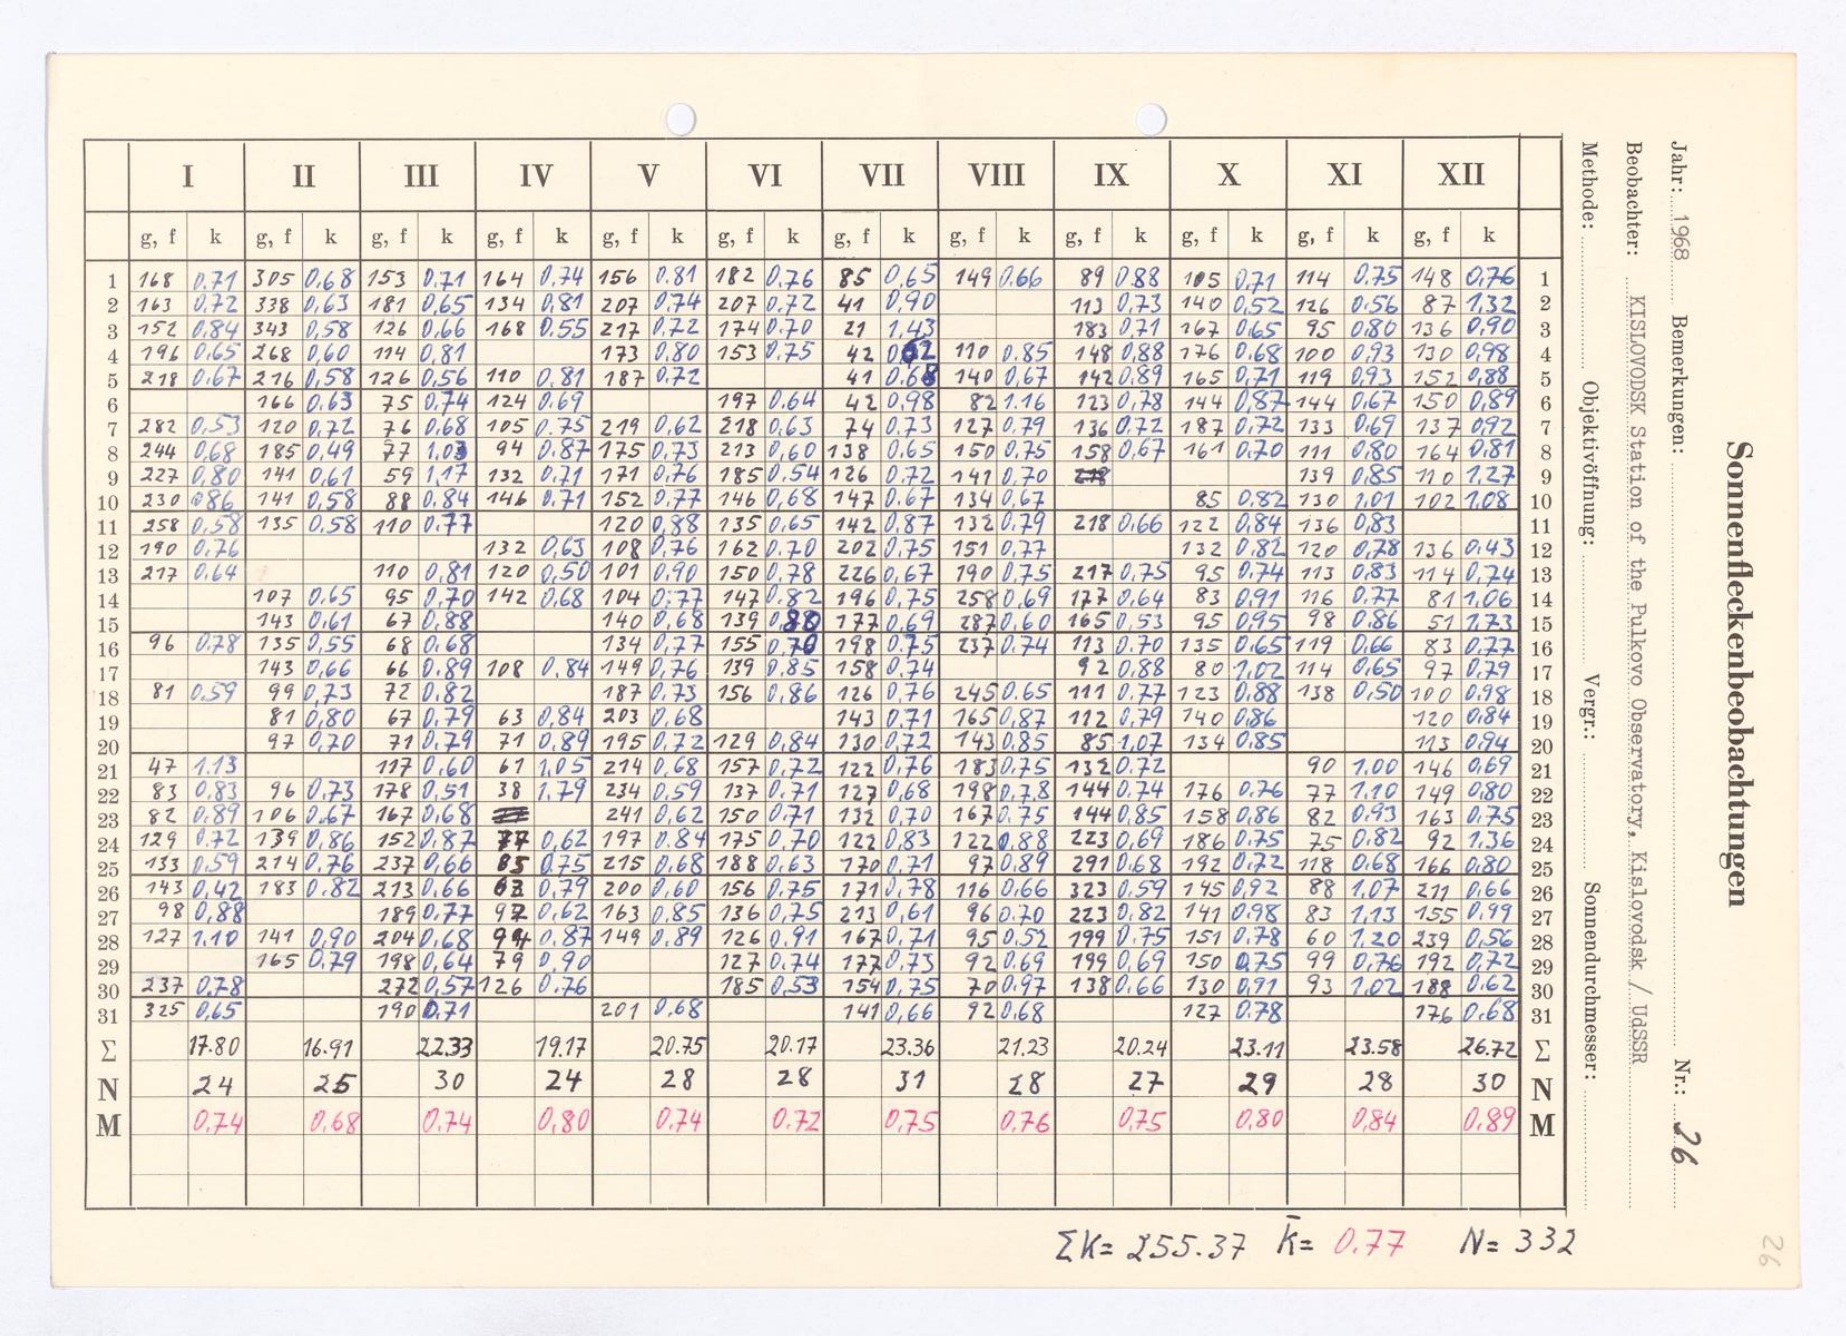 I II III IV V VI VII VIII IX X XI XII
g, f k g, f k g, f k g, f k g, f k g, f k g, f k g, f k g, f k g, f k g, f k g, f k
1 168 0.71 305 0.68 153 0.71 164 0.74 156 0.81 182 0.76 85 0.65 149 0.66 89 0.88 105 0.71 114 0.75 148 0.76 1
2 163 0.72 338 0.63 181 0.65 134 0.81 207 0.74 207 0.72 41 0.90 113 0.73 140 0.52 126 0.56 87 1.32 2
3 152 0.84 343 0.58 126 0.66 168 0.55 217 0.72 174 0.70 21 1.43 183 0.71 167 0.65 95 0.80 136 0.90 3
4 196 0.65 268 0.60 114 0.81 173 0.80 153 0.75 42 110 0.85 148 0.88 176 0.68 100 0.93 130 0.98 4
5 218 0.67 216 0.58 126 0.56 110 0.81 187 0.72 41 0.68 140 0.67 142 0.89 165 0.71 119 0.93 152 0.88 5
6 166 0.63 75 0.74 124 0.69 197 0.64 42 0.98 82 1.16 123 0.78 144 0.87 144 0.67 150 0.89 6
7 282 0.53 120 0.72 76 0.68 105 0.75 219 0.62 218 0.63 74 0.73 127 0.79 136 0.72 187 0.72 133 0.69 137 0.92 7
8 244 0.68 185 0.49 77 1.03 94 0.87 175 0.73 213 0.60 138 0.65 150 0.75 158 0.67 161 0.70 111 0.80 164 0.81 8
9 227 0.80 141 0.61 59 1.17 132 0.71 171 0.76 185 0.54 126 0.72 141 0.70 139 0.85 110 1.27 9
10 230 0.86 141 0.58 88 0.84 146 0.71 152 0.77 146 0.68 147 0.67 134 0.67 85 0.82 130 1.01 102 1.08 10
11 258 0.58 135 0.58 110 0.77 120 0.88 135 0.65 142 0.87 132 0.79 218 0.66 122 0.84 136 0.83 11
12 190 0.76 132 0.63 108 0.76 162 0.70 202 0.75 151 0.77 132 0.82 120 0.78 136 0.43 12
13 217 0.64 110 0.81 120 0.50 101 0.90 150 0.78 226 0.67 190 0.75 217 0.75 95 0.74 113 0.83 114 0.74 13
14 107 0.65 95 0.70 142 0.68 104 0.77 147 0.82 196 0.75 258 0.69 177 0.64 83 0.91 116 0.77 81 1.06 14
15 143 0.61 67 0.88 140 0.68 139 0.88 177 0.69 287 0.60 165 0.53 95 0.95 98 0.86 51 1.73 15
16 96 0.78 135 0.55 68 0.68 134 0.77 155 0.70 198 0.75 237 0.74 113 0.70 135 0.65 119 0.66 83 0.77 16
17 143 0.66 66 0.89 108 0.84 149 0.76 139 0.85 158 0.74 92 0.88 80 1.02 114 0.65 97 0.79 17
18 81 0.59 99 0.73 72 0.82 187 0.73 156 0.86 126 0.76 245 0.65 111 0.77 123 0.88 138 0.50 100 0.98 18
19 81 0.80 67 0.79 63 0.84 203 0.68 143 0.71 165 0.87 112 0.79 140 0.86 120 0.84 19
20 97 0.70 71 0.79 71 0.89 195 0.72 129 0.84 130 0.72 143 0.85 85 1.07 134 0.85 113 0.94 20
21 47 1.13 117 0.60 61 1.05 214 0.68 157 0.72 122 0.76 183 0.75 132 0.72 90 1.00 146 0.69 21
22 83 0.83 96 0.73 178 0.51 38 1.79 234 0.59 137 0.71 127 0.68 198 0.78 144 0.74 176 0.76 77 1.10 149 0.80 22
23 82 0.89 106 0.67 167 0.68 241 0.62 150 0.71 132 0.70 167 0.75 144 0.85 158 0.86 82 0.93 163 0.75 23
24 129 0.72 139 0.86 152 0.87 77 0.62 197 0.84 175 0.70 122 0.83 122 0.88 223 0.69 186 0.75 75 0.82 92 1.36 24
25 133 0.59 214 0.76 237 0.66 85 0.75 215 0.68 188 0.63 170 0.71 97 0.89 291 0.68 192 0.72 118 0.68 166 0.80 25
26 143 0.42 183 0.82 213 0.66 0.79 200 0.60 156 0.75 171 0.78 116 0.66 323 0.59 145 0.92 88 1.07 211 0.66 26
27 98 0.88 189 0.77 97 0.62 163 0.85 136 0.75 213 0.61 96 0.70 223 0.82 141 0.98 83 1.13 155 0.99 27
28 127 1.10 141 0.90 204 0.68 94 0.87 149 0.89 126 0.91 167 0.71 95 0.52 199 0.75 151 0.78 60 1.20 239 0.56 28
29 165 0.79 198 0.64 79 0.90 127 0.74 177 0.73 92 0.69 199 0.69 150 0.75 99 0.76 192 0.72 29
30 237 0.78 272 0.57 126 0.76 185 0.53 154 0.75 70 0.97 138 0.66 130 0.91 93 1.02 188 0.62 30
31 325 0.65 190 0.71 201 0.68 141 0.66 92 0.68 127 0.78 176 0.68 31
Σ 17.80 16.91 22.33 19.17 20.75 20.17 23.36 21.23 20.24 23.11 23.58 26.72 Σ
N 24 25 30 24 28 28 31 28 27 29 28 30 N
M 0.74 0.68 0.74 0.80 0.74 0.72 0.75 0.76 0.75 0.80 0.84 0.89 M
ΣK= 255.37 k̄= 0.77 N= 332
Sonnenfleckenbeobachtungen
Jahr: 1968 Bemerkungen: Nr.: 26
Beobachter: KISLOVODSK Station of the Pulkovo Observatory, Kislovodsk / UdSSR
Methode: Objektivöffnung: Vergr.: Sonnendurchmesser:
26